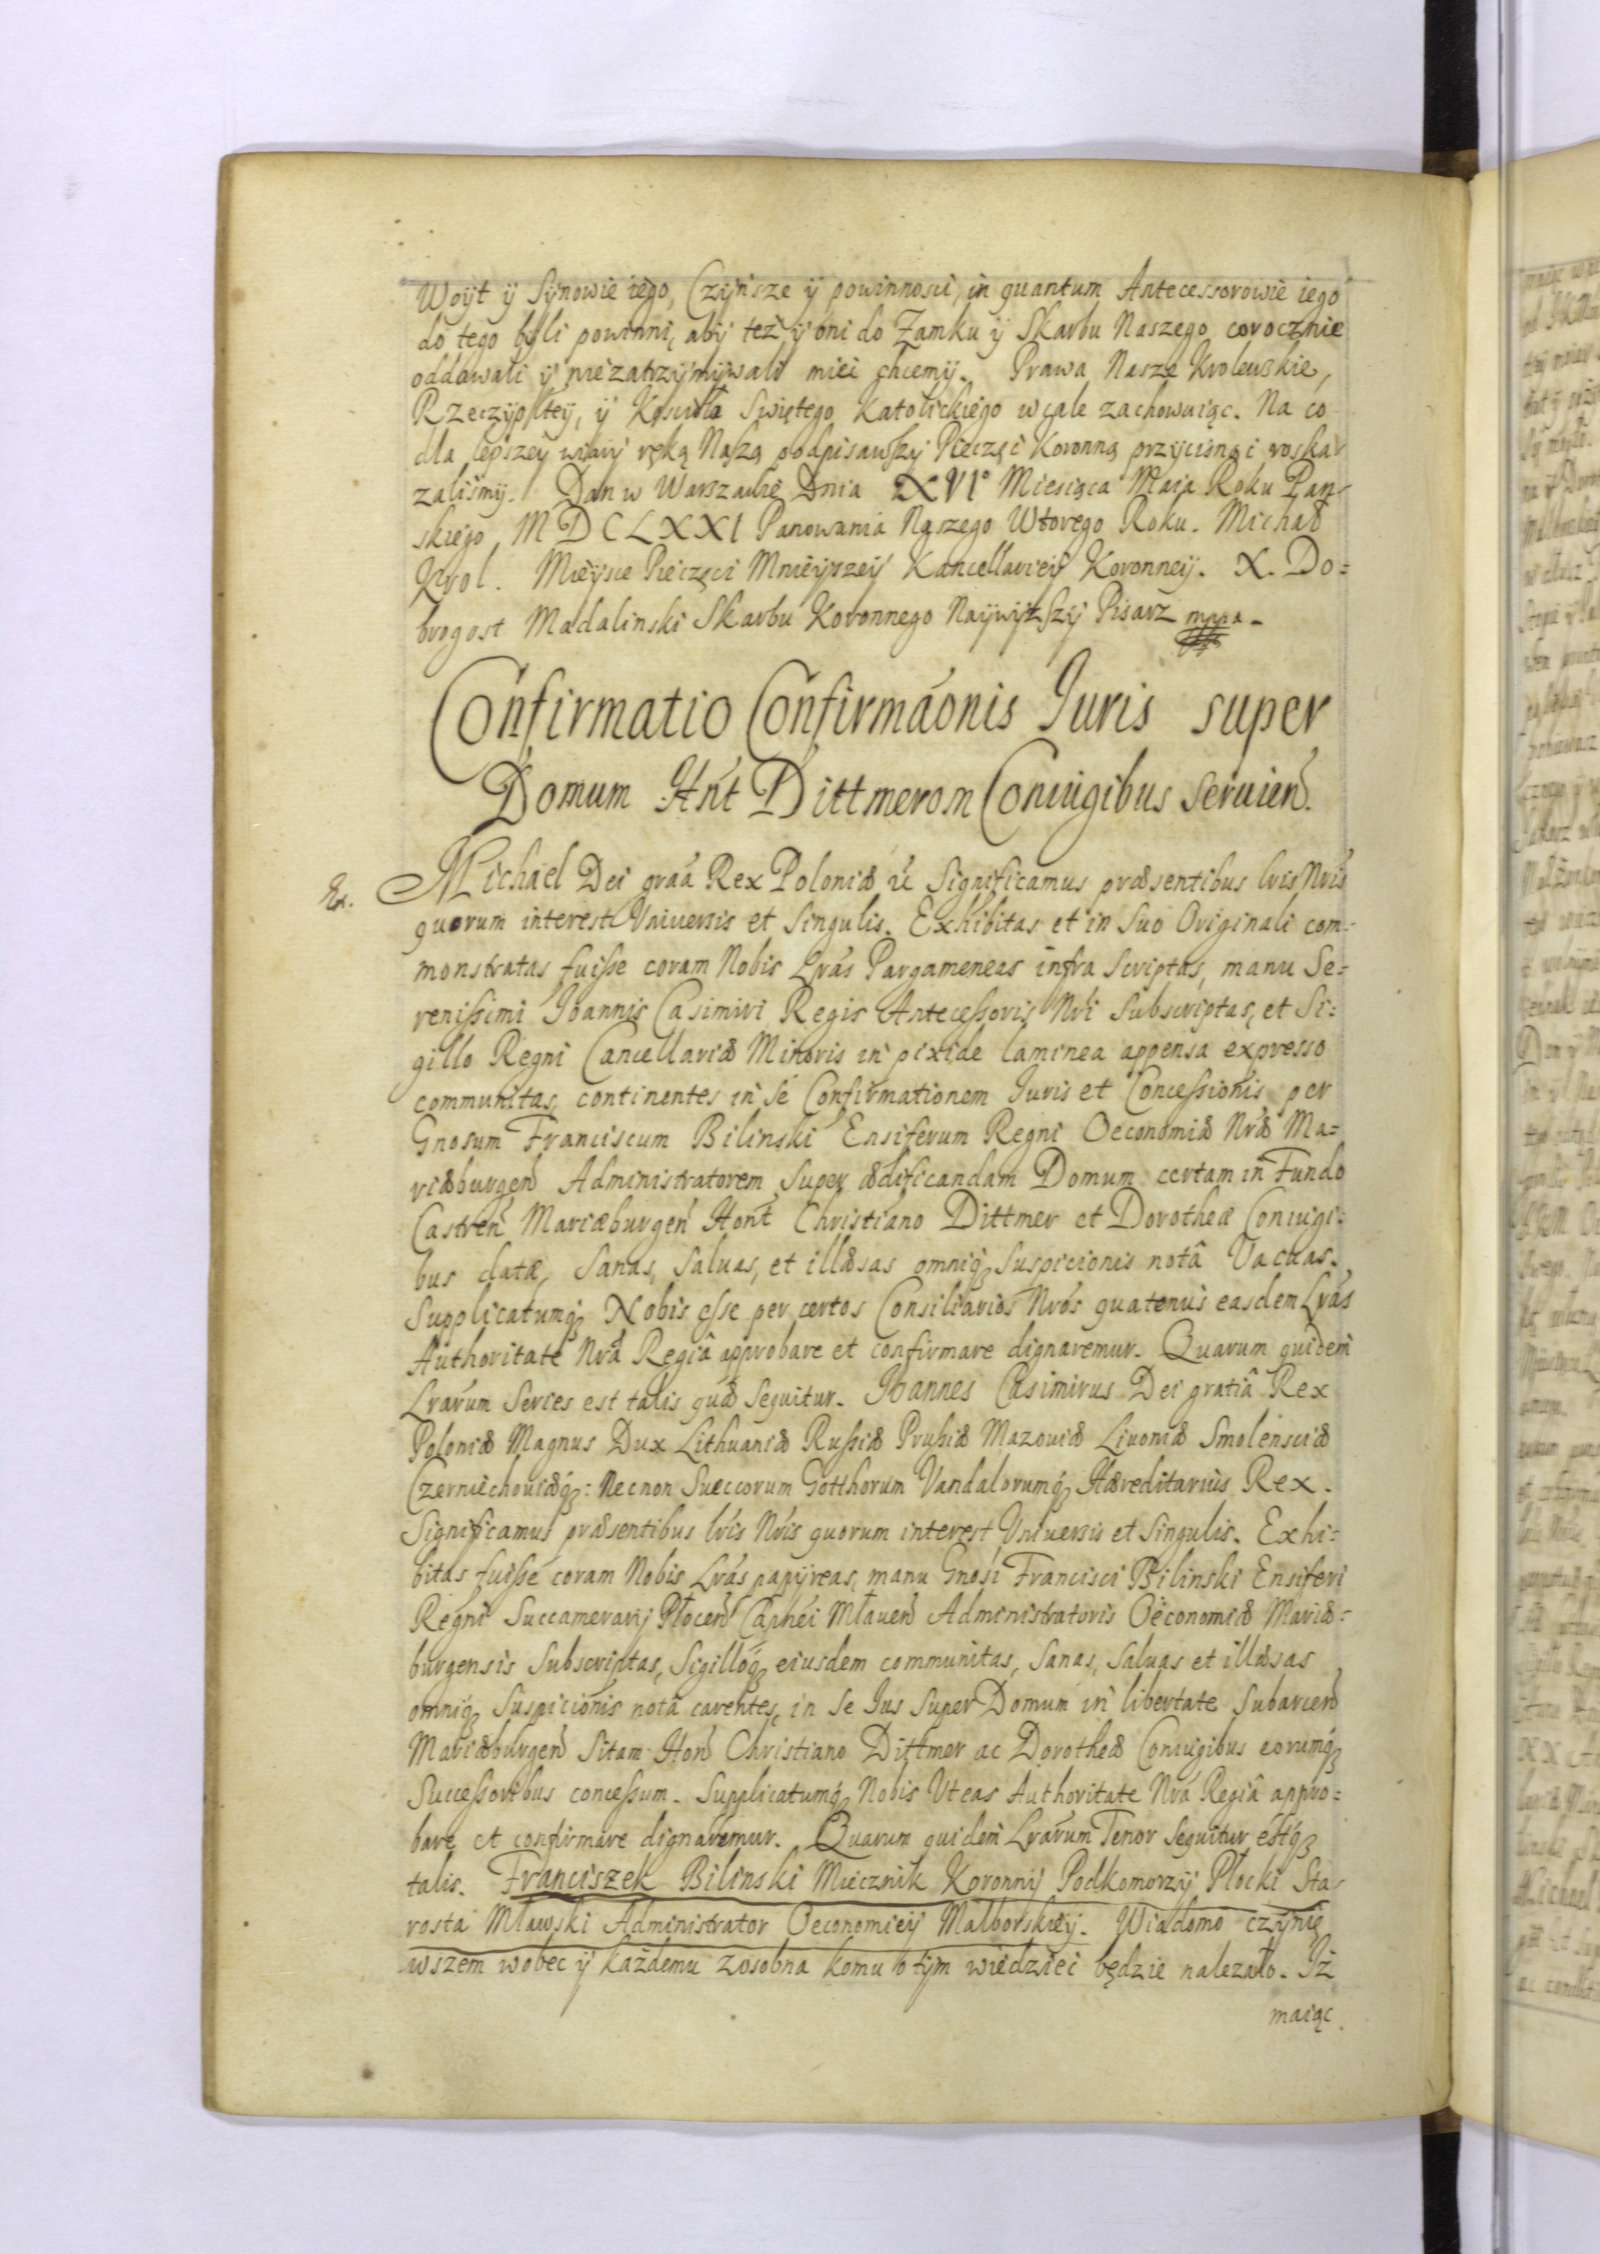 Woÿt ÿ Sÿnowie iego, Czÿnsze ÿ powinnosci, in quantum Antecessorowie iego
do tego bÿli powinni, abÿ też ÿ oni do Zamku ÿ Skarbu Naszego corocznie
oddawali ÿ niezatrzÿmÿwali miei chcemÿ. Prawa Nasze Krolewskie,
Rzeczÿplteÿ, ÿ Koscioła Swiętego Katolickiego wcale zachowuiąc. Na co
dla lepszeÿ wiarÿ ręką Naszą podpisawszÿ Pieczęć Koronną przÿcisnąć roska-
zalismÿ. Dan w Warszawie Dnia XVI° Miesiąca Maia Roku Pan-
skiego MDCLXXI Panowania Naszego Wtorego Roku. Michał
Krol. Mieÿsce Pieczęci Mnieÿszeÿ Kancellarieÿ Koronneÿ. X. Do=
brogost Madalinski Skarbu Koronnego Naÿwÿższÿ Pisarz mppa.
Confirmatio Confirmáonis Iuris super
Domum Hńt Dittmerom Coniugibus seruien̄.
Ex. Michael Dei graá Rex Poloniæ ic̄ Significamus præsentibus lr̄is Nr̄is
quorum interest Vniuersis et singulis. Exhibitas et in suo Originali com-
monstratas fuisse coram Nobis Lrás Pargameneas infra scriptas, manu Se=
renissimi Ioannis Casimiri Regis Antecessoris Nr̄i Subscriptas, et Si=
gillo Regni Cancellariæ Minoris in pixide laminea appensa expresso
communitas, continentes in se Confirmationem Iuris et Concessionis per
Gnosum Franciscum Bilinski Ensiferum Regni Oeconomiæ Nr̄æ Ma=
riæburgen̄ Administratorem Super ædificandam Domum certam in Fundo
Castren̄ Mariæburgen̄ Hońt Christiano Dittmer et Dorotheæ Coniugi=
bus datæ, Sanas, Saluas, et illæsas omniq; Suspicionis notâ Vacuas.
Supplicatumq; Nobis esse per certos Consiliarios Nrós quatenus easdem Lrás
Authoritate Nrâ Regiâ approbare et confirmare dignaremur. Quarum quidem
Lrárum Series est talis quæ sequitur. Ioannes Casimirus Dei gratiâ Rex
Poloniæ Magnus Dux Lithuaniæ Russiæ Prussiæ Mazouiæ Liuoniæ Smolensciæ
Czerniechouiæq;: Necnon Sueccorum Gotthorum Vandalorumq; Hæreditarius Rex.
Significamus præsentibus lr̄is Nr̄is quorum interest Vniuersis et singulis. Exhi=
bitas fuisse coram Nobis Lrás papÿreas, manu Gnosi Francisci Bilinski Ensiferi
Regni Succamerarij Płocen̄ Capnéi Mławen̄ Administratoris Oeconomiæ Mariæ=
burgensis Subscriptas, Sigilloq; eiusdem communitas, Sanas, Saluas et illæsas
omniq; Suspicionis notâ carentes, in se Ius super Domum in libertate Subarcen̄
Mariæburgen̄ Sitam Hon̄ Christiano Dittmer ac Dorotheæ Coniugibus eorumq;
Successoribus concessum. Supplicatumq; Nobis Vteas Authoritate Nrâ Regiâ appro=
bare et confirmare dignaremur. Quarum quidem Lrárum Tenor sequitur estq;
talis. Franciszek Bilinski Miecznik Koronnÿ Podkomorzÿ Płocki Sta-
rosta Mławski Administrator Oeconomieÿ Malborskieÿ. Wiadomo czÿnię
wszem wobec ÿ każdemu zosobna komu o tÿm wiedziec będzie nalezało. Iż
maiąc